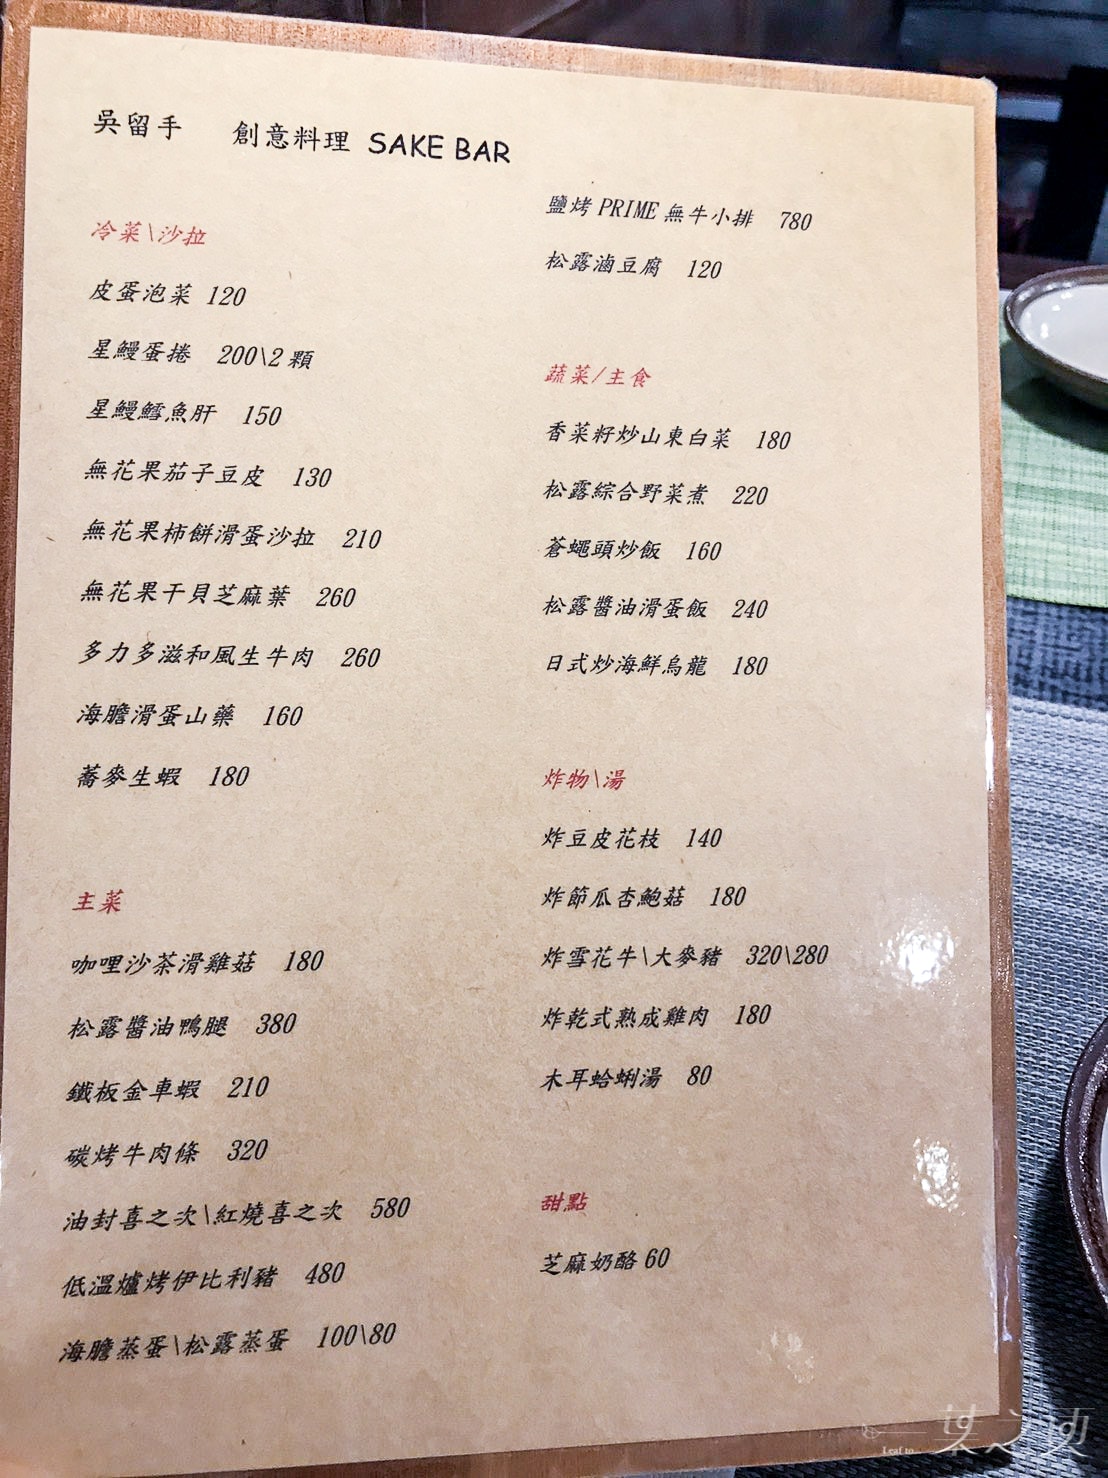 吳留手 創意料理 SAKE BAR
冷菜\沙拉
皮蛋泡菜 120
星鰻蛋捲 200\2 顆
星鰻鱈魚肝 150
無花果茄子豆皮 130
無花果柿餅滑蛋沙拉 210
無花果干貝芝麻葉 260
多力多滋和風生牛肉 260
海膽滑蛋山藥 160
蕎麥生蝦 180
主菜
咖哩沙茶滑雞菇 180
松露醬油鴨腿 380
鐵板金車蝦 210
碳烤牛肉條 320
油封喜之次\紅燒喜之次 580
低溫爐烤伊比利豬 480
海膽蒸蛋\松露蒸蛋 100\80
鹽烤 PRIME 無牛小排 780
松露滷豆腐 120
蔬菜/主食
香菜籽炒山東白菜 180
松露綜合野菜煮 220
蒼蠅頭炒飯 160
松露醬油滑蛋飯 240
日式炒海鮮烏龍 180
炸物\湯
炸豆皮花枝 140
炸節瓜杏鮑菇 180
炸雪花牛\大麥豬 320\280
炸乾式熟成雞肉 180
木耳蛤蜊湯 80
甜點
芝麻奶酪 60
葉之使
Leaf to